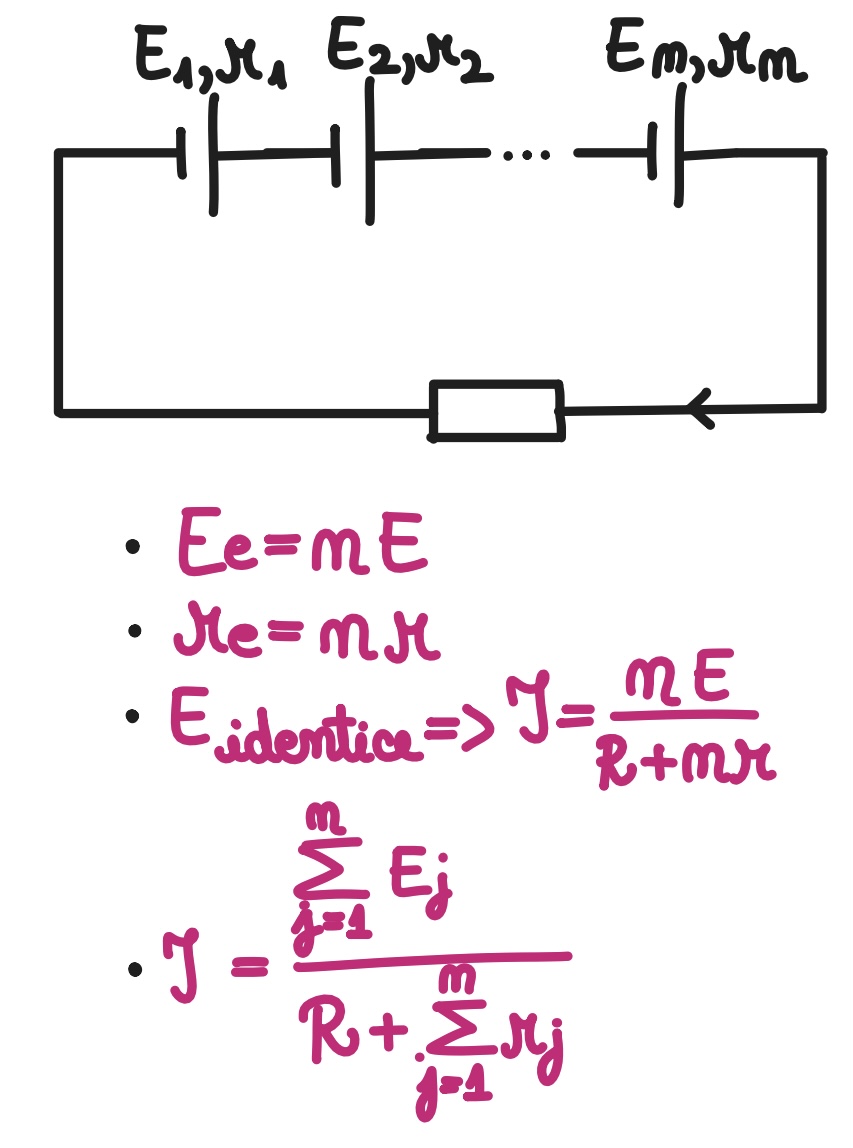 E₁,r₁ E₂,r₂ ... Eₙ,rₙ
• Ee = nE
• re = nr
• E identice => I = nE / (R + nr)
• I = ∑ⁿⱼ₌₁ Eⱼ / (R + ∑ⁿⱼ₌₁ rⱼ)